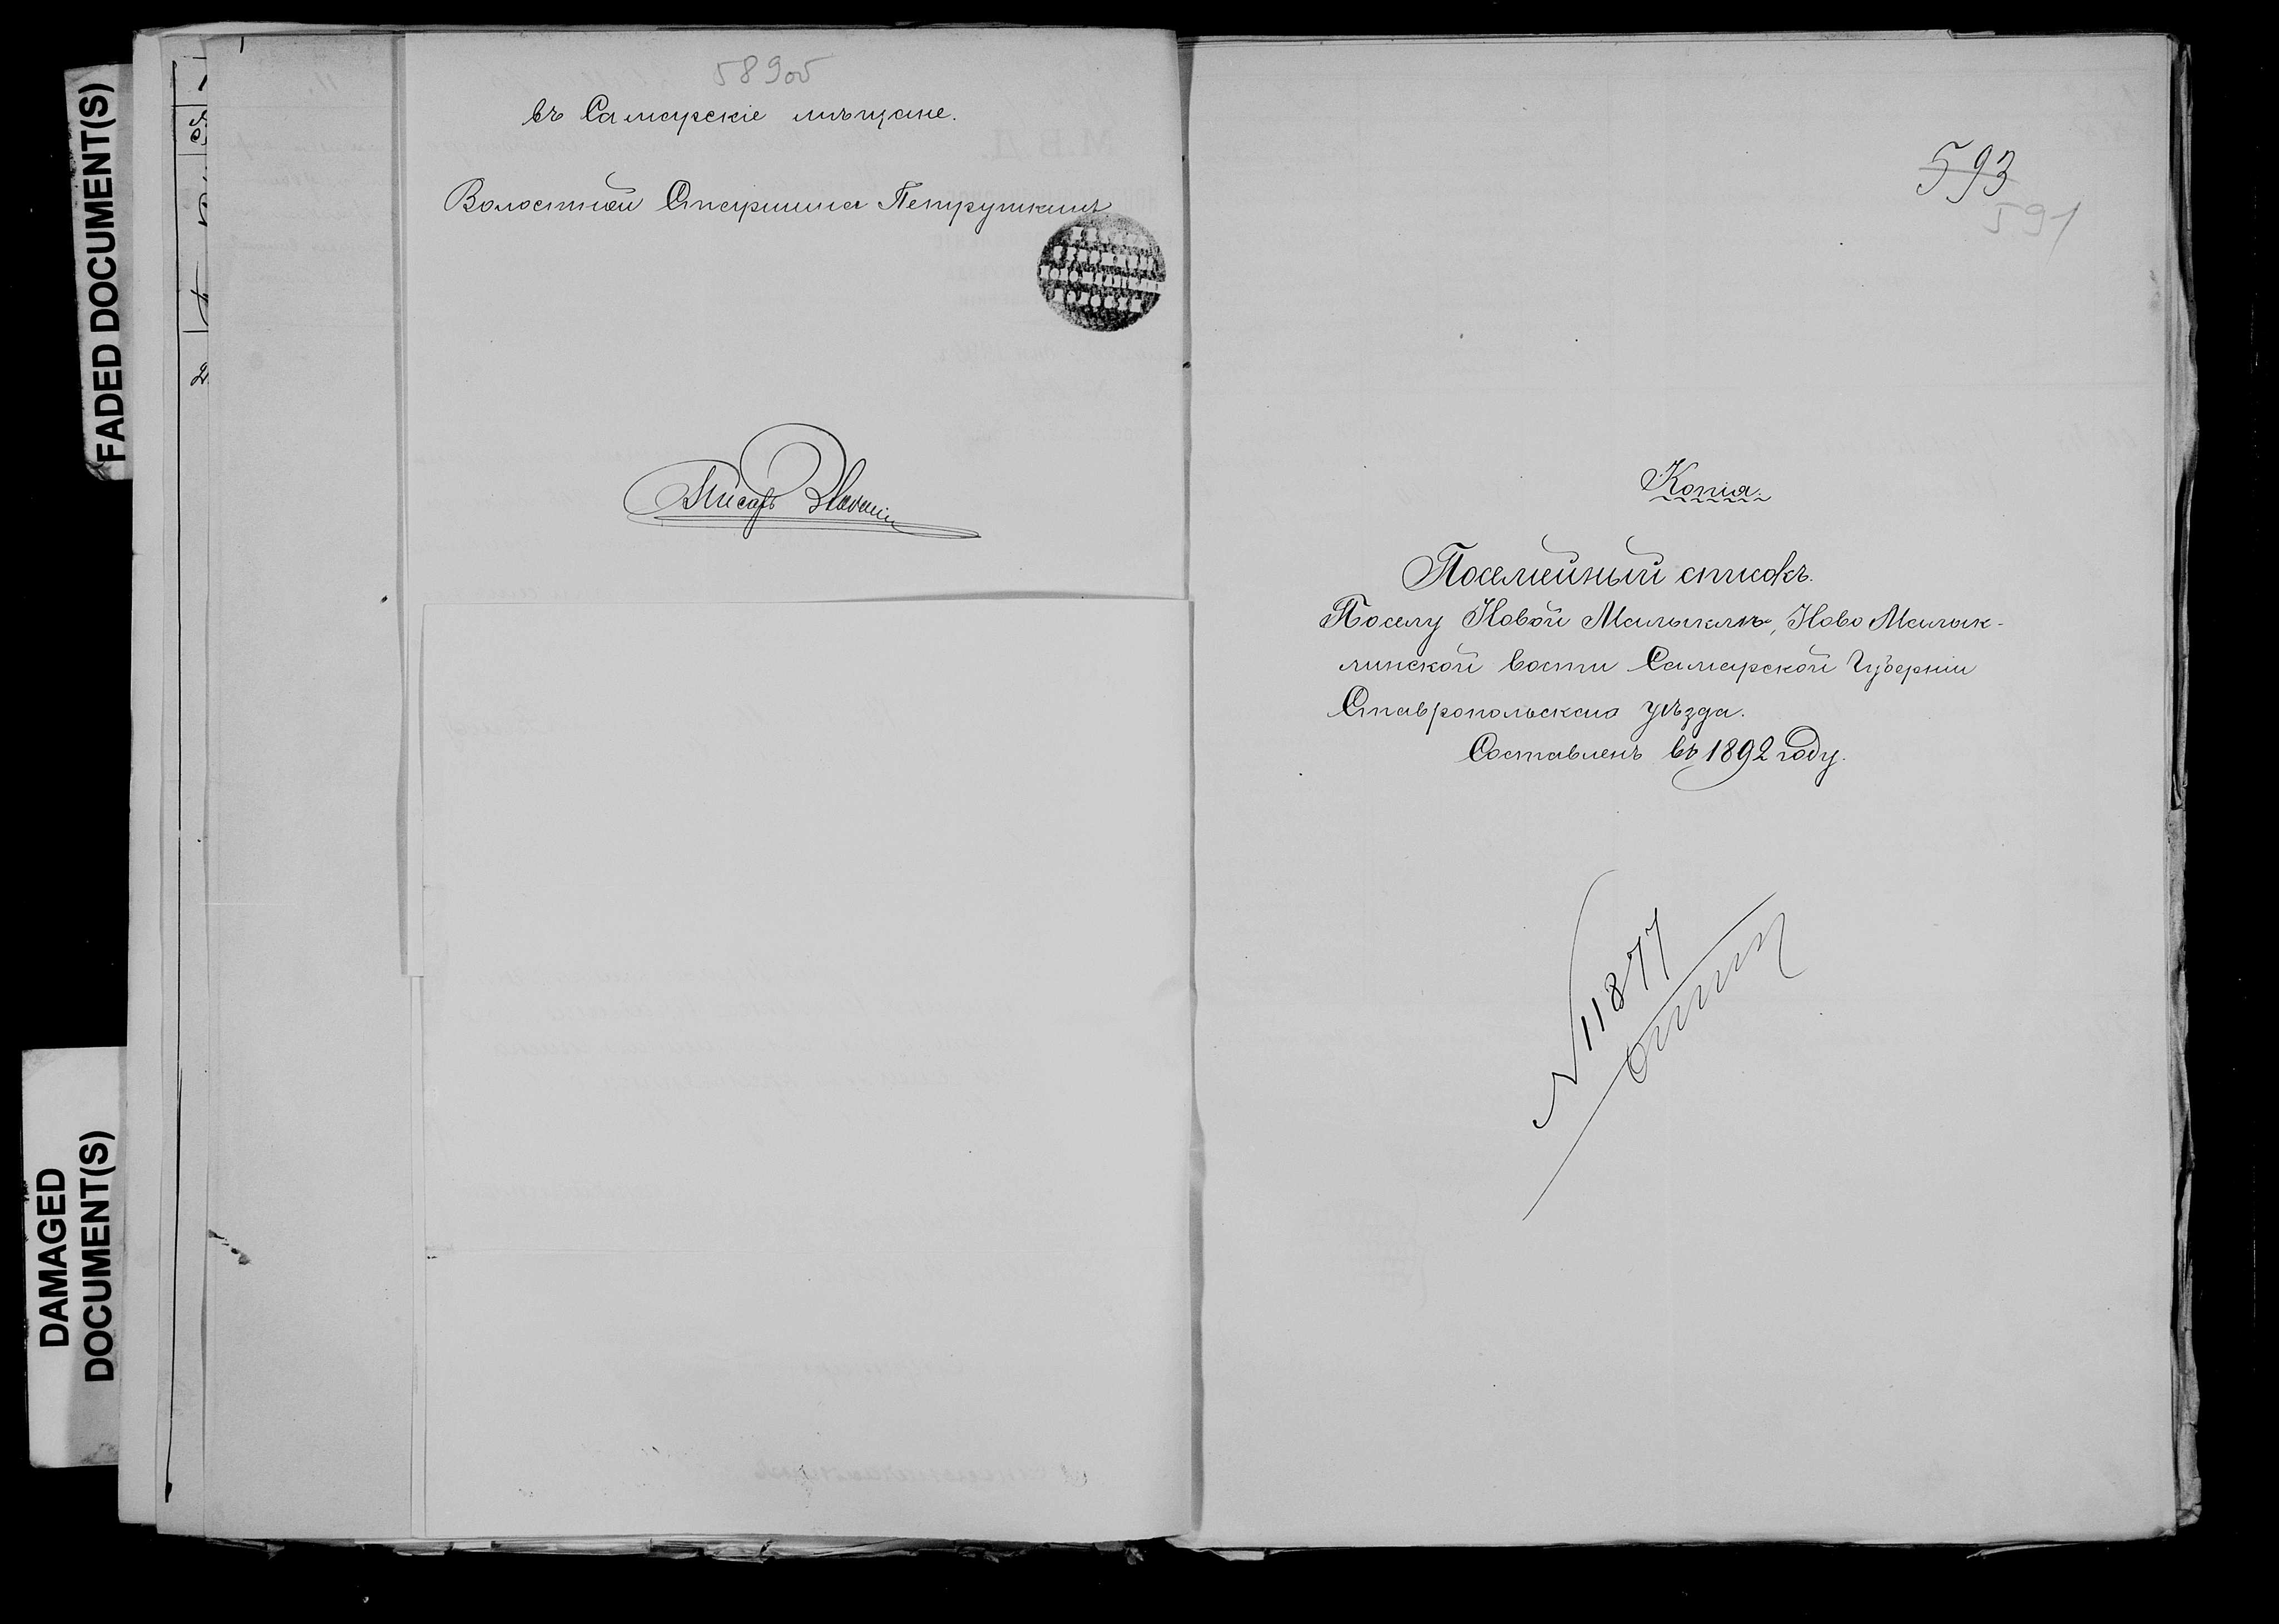 FADED DOCUMENT(S)
DAMAGED
DOCUMENT(S)
589об
въ Самарскіе мѣщане.
Волостной Старшина Петрушкинъ
Писарь
593
591
Копія.
Посемейный списокъ.
По селу Новой Малыклѣ, Ново Малык-
линской вости Самарской Губерніи
Ставропольскаго уѣзда.
Составленъ въ 1892 году.
№ 11877